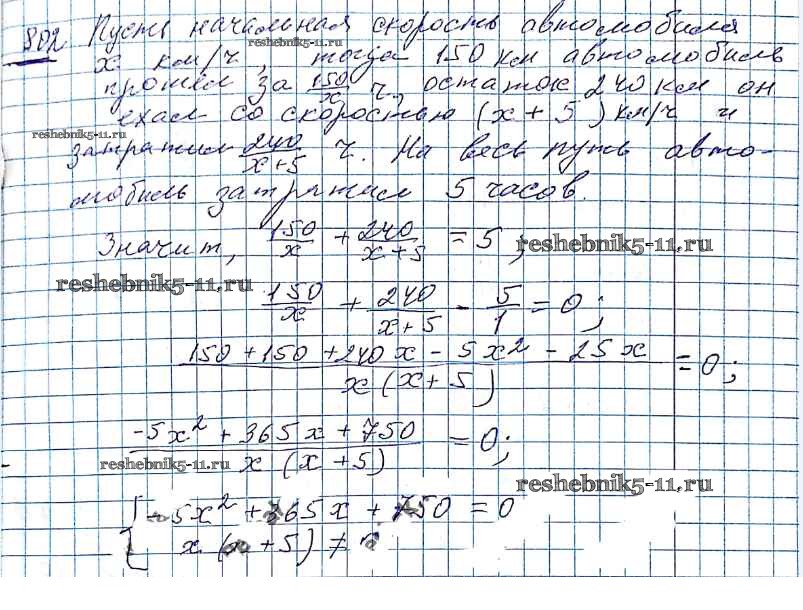 802 Пусть начальная скорость автомобиля
reshebnik5-11.ru
x км/ч, тогда 150 км автомобиль
прошёл за 150/x ч, остаток 240 км он
ехал со скоростью (x + 5) км/ч и
reshebnik5-11.ru
затратил 240/(x+5) ч. На весь путь авто-
мобиль затратил 5 часов.
Значит, 150/x + 240/(x+5) = 5; reshebnik5-11.ru
reshebnik5-11.ru
150/x + 240/(x+5) - 5/1 = 0;
(150 + 150 + 240x - 5x² - 25x)/(x(x+5)) = 0;
(-5x² + 365x + 750)/(x(x+5)) = 0;
reshebnik5-11.ru
reshebnik5-11.ru
{ -5x² + 365x + 750 = 0
x(x+5) ≠